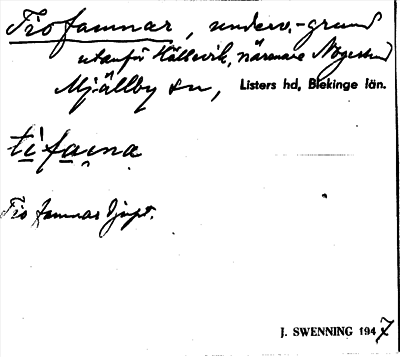 Tiofamnar, underv.-grund
utanför Hällevik, närmare Nogersund
Mjällby sn, Listers hd, Blekinge län.
tifamna
Tio famnar djupt.
J. SWENNING 1947